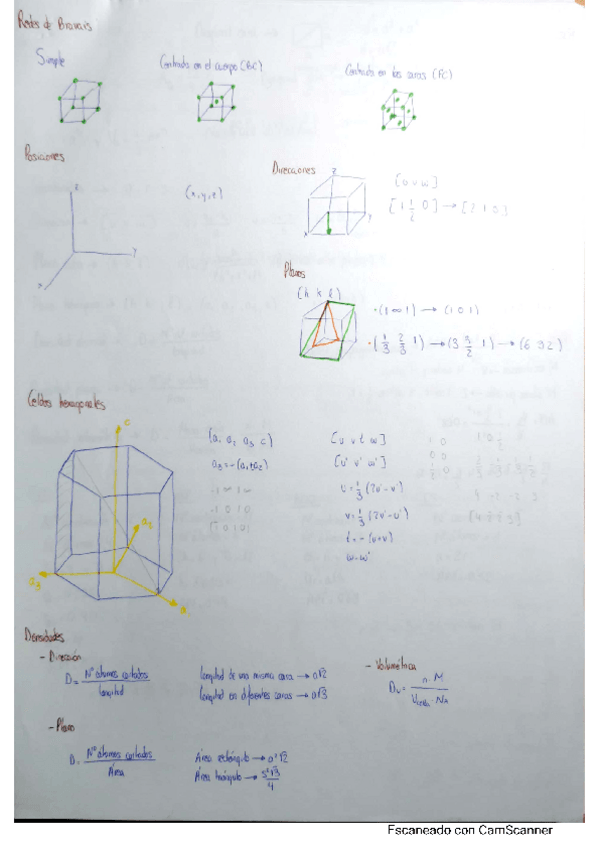 Redes de Bravais
Simple
Centrada en el cuerpo (BC)
Centrada en las caras (FC)
Posiciones
z
y
x
(x,y,z)
Direcciones
z
y
x
[u v w]
[1 1/2 0] → [2 1 0]
Planos
(h k l)
· (1 ∞ 1) → (1 0 1)
· (1/3 2/3 1) → (3 3/2 1) → (6 3 2)
Celdas hexagonales
c
a₃
(a₁ a₂ a₃ c)
a₃=-(a₁+a₂)
-1 ∞ 1 ∞
-1 0 1 0
[u v t w]
[u' v' w']
u=1/3 (2u'-v')
v=1/3 (2v'-u')
t=-(u+v)
w=w'
Densidades
- Dirección
D= Nº átomos cortados / longitud
longitud de una misma cara → a√2
longitud en diferentes caras → a√3
- Volumétrica
Dv= n·M / Vcelda·Na
- Plano
D= Nº átomos cortados / Área
Área rectángulo → a²√2
Área triángulo → s²√3/4
Escaneado con CamScanner